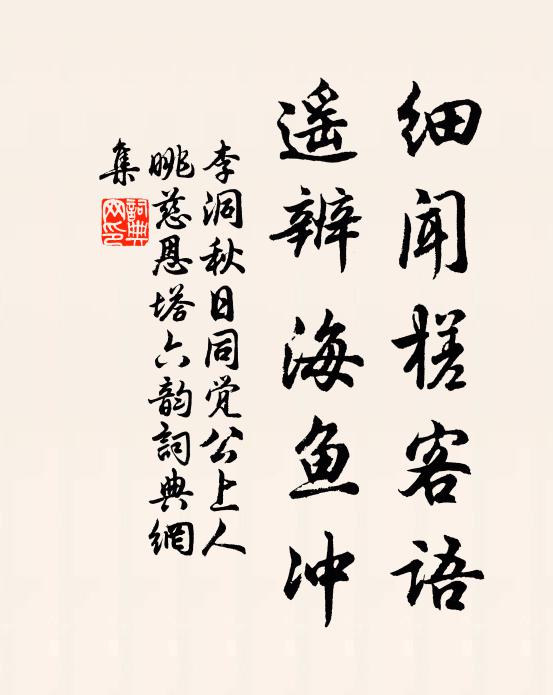 细闻槎客语
遥辨海鱼冲
李洞秋日同觉公上人
眺慈恩塔六韵詞典網
集
詞典
网印